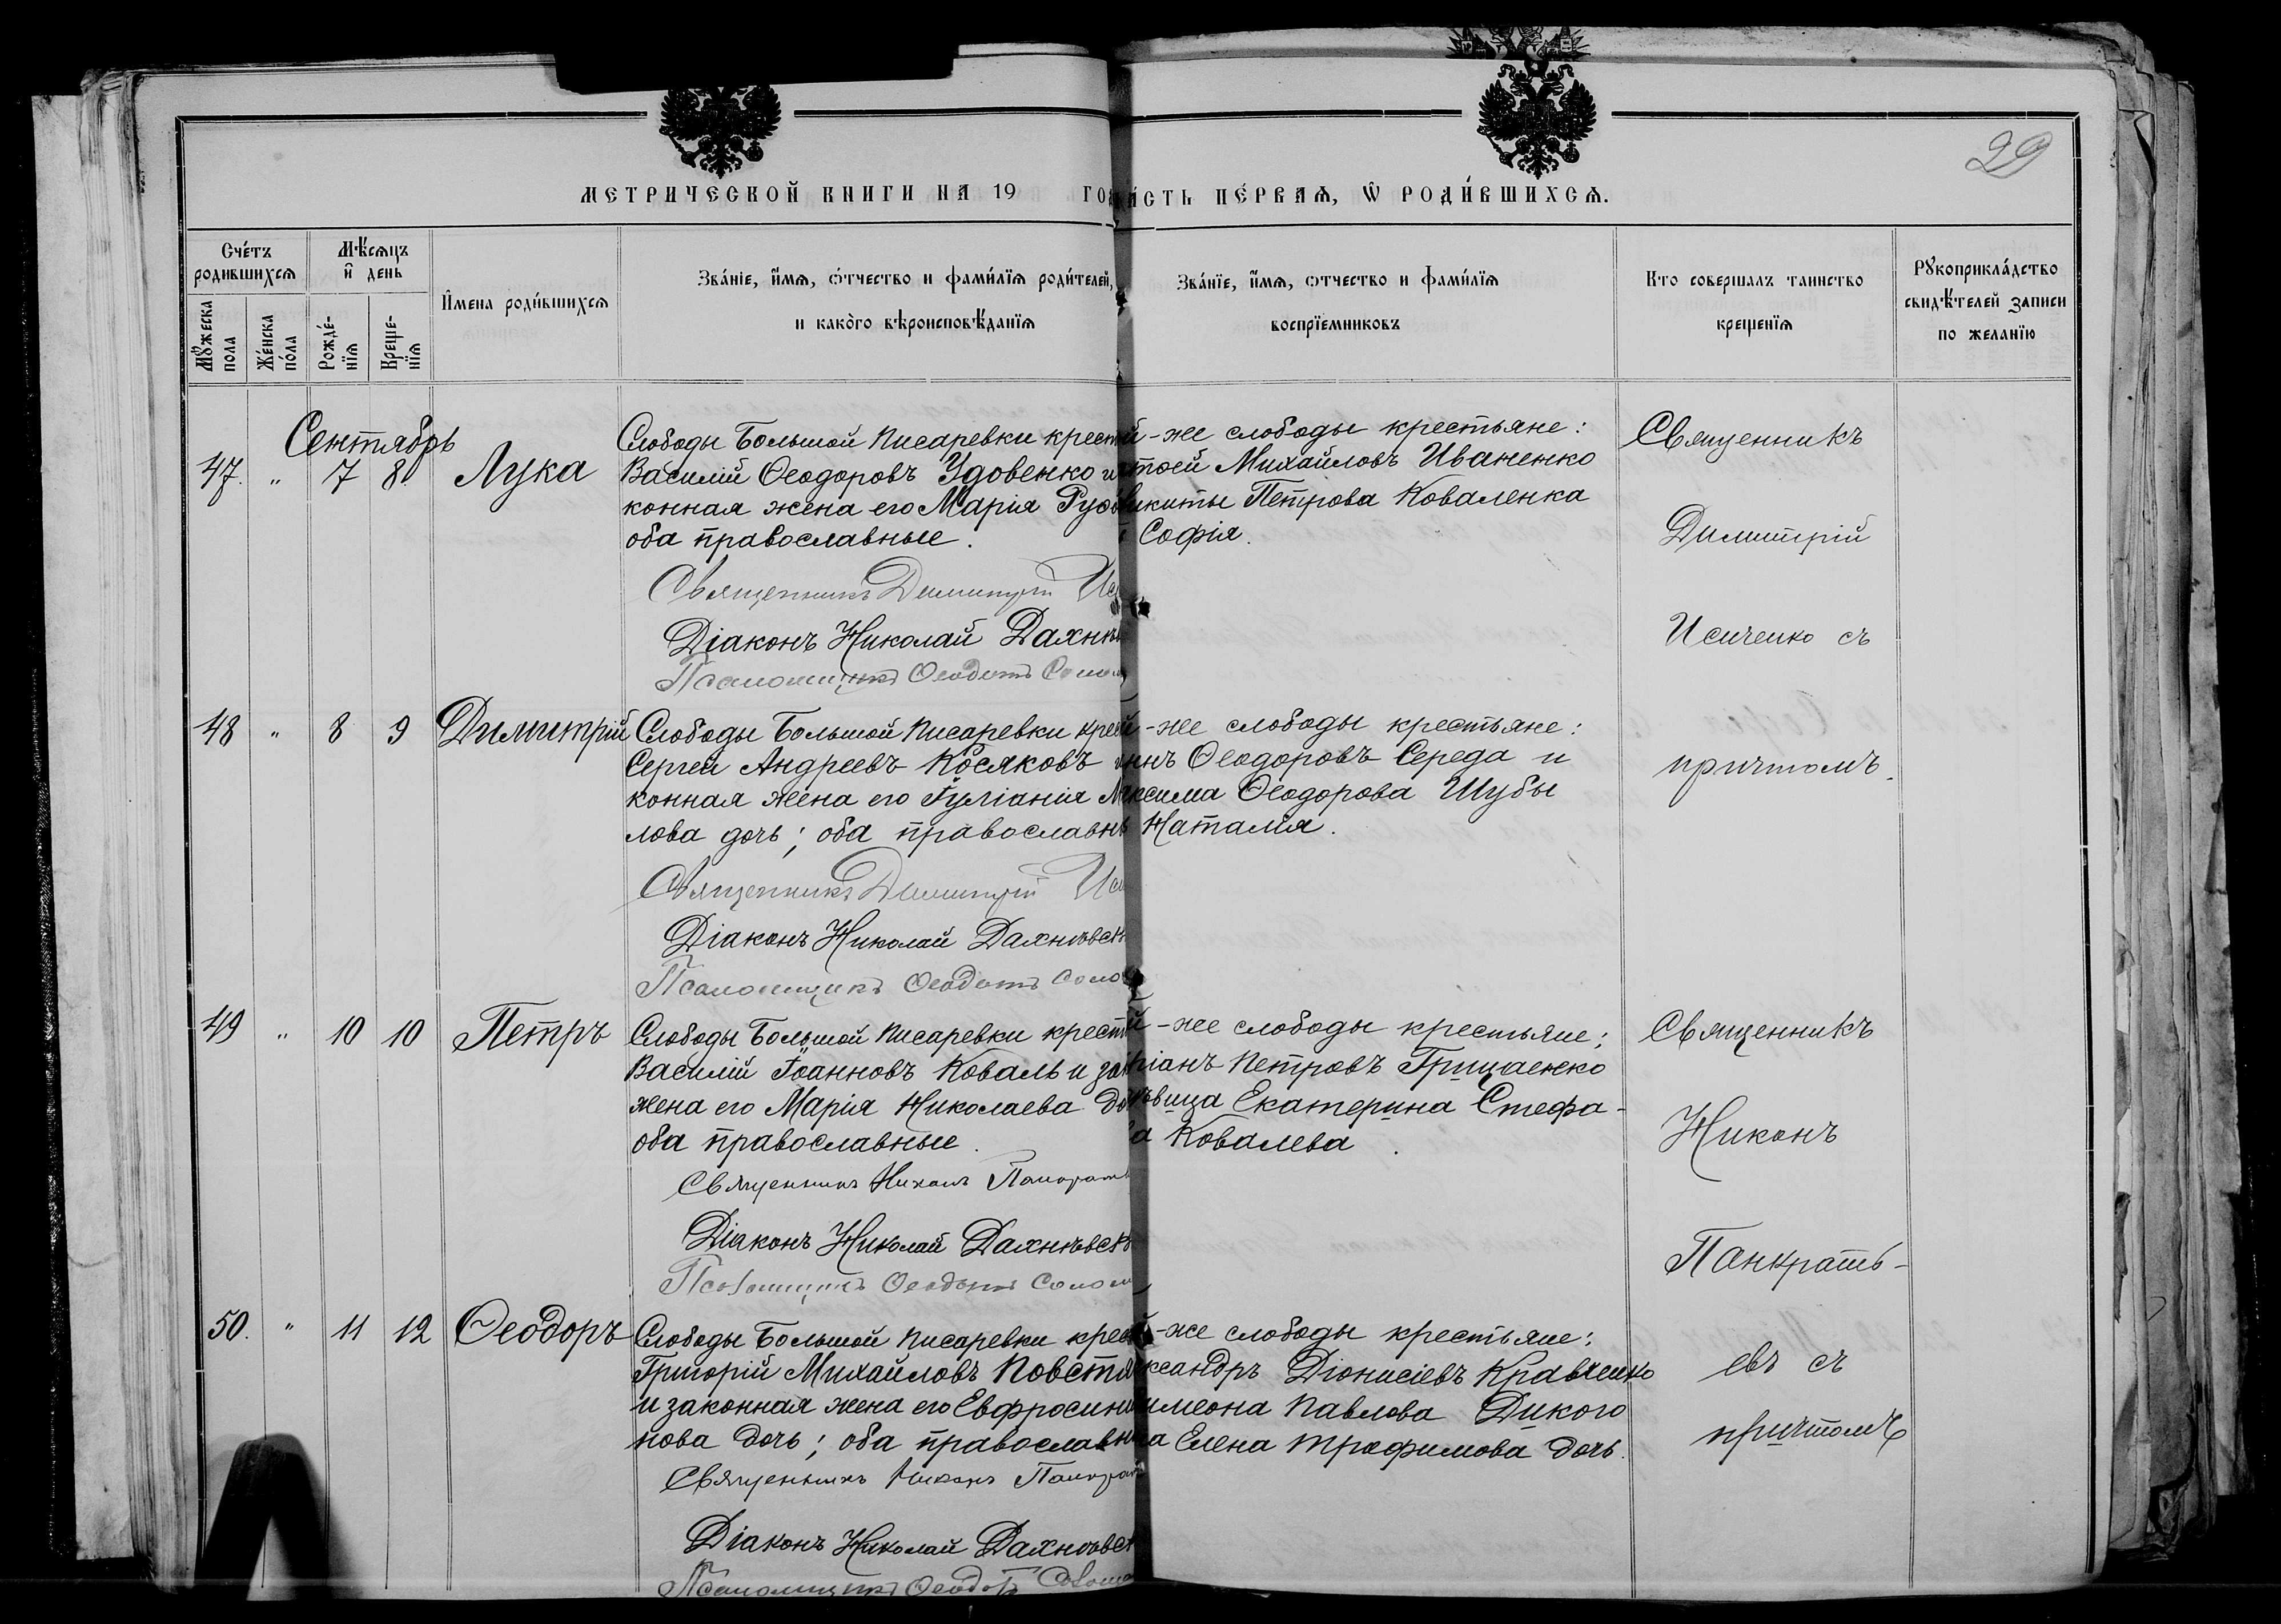 29
МЕТРИЧЕСКОЙ КНИГИ НА 19 ГО
ЧА́СТЬ ПЕ́РВАЯ, Ѡ҆ РОДИ́ВШИХСЯ.
Сче́тъ родившихся
Мѣ́сяцъ и҆ день
И҆мена роди́вшихся
Зва́ніе, и҆́мя, ѻ҆́тчество и фами́лїя роди́телей,
и како̀го вѣроисповѣ́данїя
Зва́нїе, и҆́мя, ѻтчество и фами́лїя
воспрїемниковъ
Кто совершалъ таинство
крещенїя
Рꙋкоприкла́дство
свидѣ́телей записи
по желанїю
Мꙋжеска пола
Же́нска по́ла
Рожде́-нїя
Креще-нїя
Сентябрь
47. " 7 8. Лука
Слободы Большой Писаревки крест
Василій Ѳеодоровъ Удовенко и
конная жена его Марія
оба православные.
Священникъ Димитрій Ис
Діаконъ Николай Дахнѣв
Псаломщикъ Ѳеодотъ Солом
й-же слободы крестьяне:
Михайловъ Иваненко
Никиты Петрова Коваленка
Софія.
Священникъ
Димитрій
Исиченко съ
причтомъ.
48 " 8 9 Димитрій
Слободы Большой Писаревки крес
Сергей Андреевъ Косяковъ
конная жена его Іуліанія
лова дочь; оба православн
Священникъ Димитрій Иси
Діаконъ Николай Дахнѣвск
Псаломщикъ Ѳеодотъ Солом
й-же слободы крестьяне:
Ѳеодоровъ Середа и
ксима Ѳеодорова Шубы
Наталія.
49 " 10 10 Петръ
Слободы Большой Писаревки крест
Василій Іоанновъ Коваль и зак
жена его Марія Николаева до
оба православные.
Священникъ Никонъ Панкрать
Діаконъ Николай Дахнѣвск
Псаломщикъ Ѳеодотъ Солом
й-же слободы крестьяне:
ріанъ Петровъ Грицаенко
вица Екатерина Стефа-
ва Ковалева.
Священникъ
Никонъ
Панкрать-
евъ съ
причтомъ
50. " 11 12 Ѳеодоръ
Слободы Большой Писаревки крес
Григорій Михайловъ Повстя
и законная жена его Евфросинія
нова дочь; оба православн
Священникъ Никонъ Панкрат
Діаконъ Николай Дахнѣвск
Псаломщикъ Ѳеодотъ Солом
й-же слободы крестьяне:
ксандръ Діонисіевъ Кравченко
имеона Павлова Дикого
на Елена Трофимова дочь.